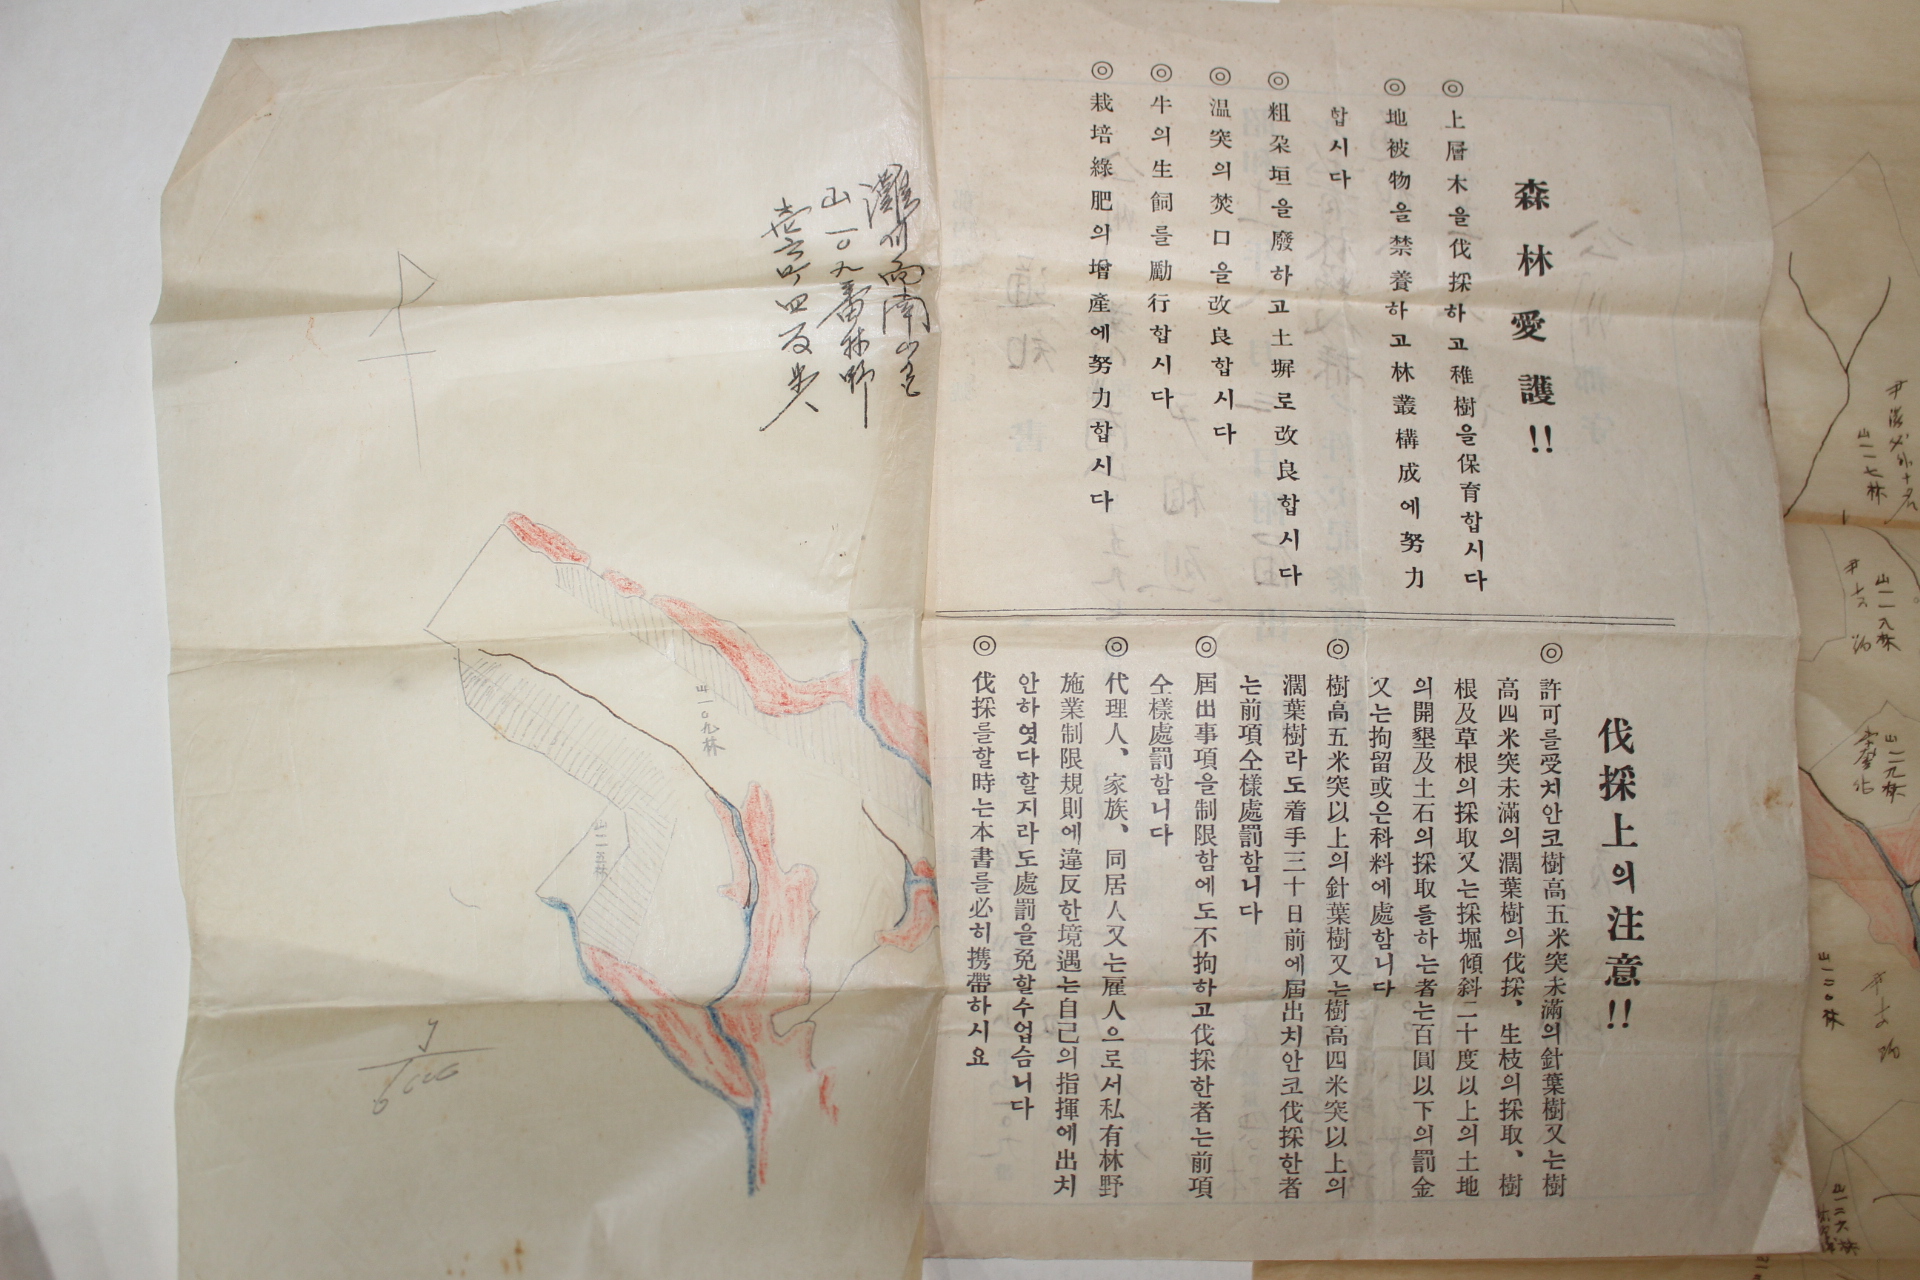 森林愛護!!
◎上層木을伐採하고稚樹을保育합시다
◎地被物을禁養하고林叢構成에努力
합시다
◎粗朶垣을廢하고土塀로改良합시다
◎温突의焚口을改良합시다
◎牛의生飼를勵行합시다
◎栽培綠肥의增產에努力합시다
伐採上의注意!!
◎許可를受치안코樹高五米突未滿의針葉樹又는樹
高四米突未滿의濶葉樹의伐採、生枝의採取、樹
根及草根의採取又는採堀傾斜二十度以上의土地
의開墾及土石의採取를하는者는百圓以下의罰金
又는拘留或은科料에處함니다
◎樹高五米突以上의針葉樹又는樹高四米突以上의
濶葉樹라도着手三十日前에屆出치안코伐採한者
는前項仝樣處罰함니다
◎屆出事項을制限함에도不拘하고伐採한者는前項
仝樣處罰함니다
◎代理人、家族、同居人又는雇人으로서私有林野
施業制限規則에違反한境遇는自己의指揮에出치
안하엿다할지라도處罰을免할수업슴니다
◎伐採를할時는本書를必히携帶하시요
灘川面南山里
山一○九番林野
壹町四反步
山一○九林
山一一五林
1/6000
山一一七林
山一一八林
山一一九林
山一二○林
山一二六林